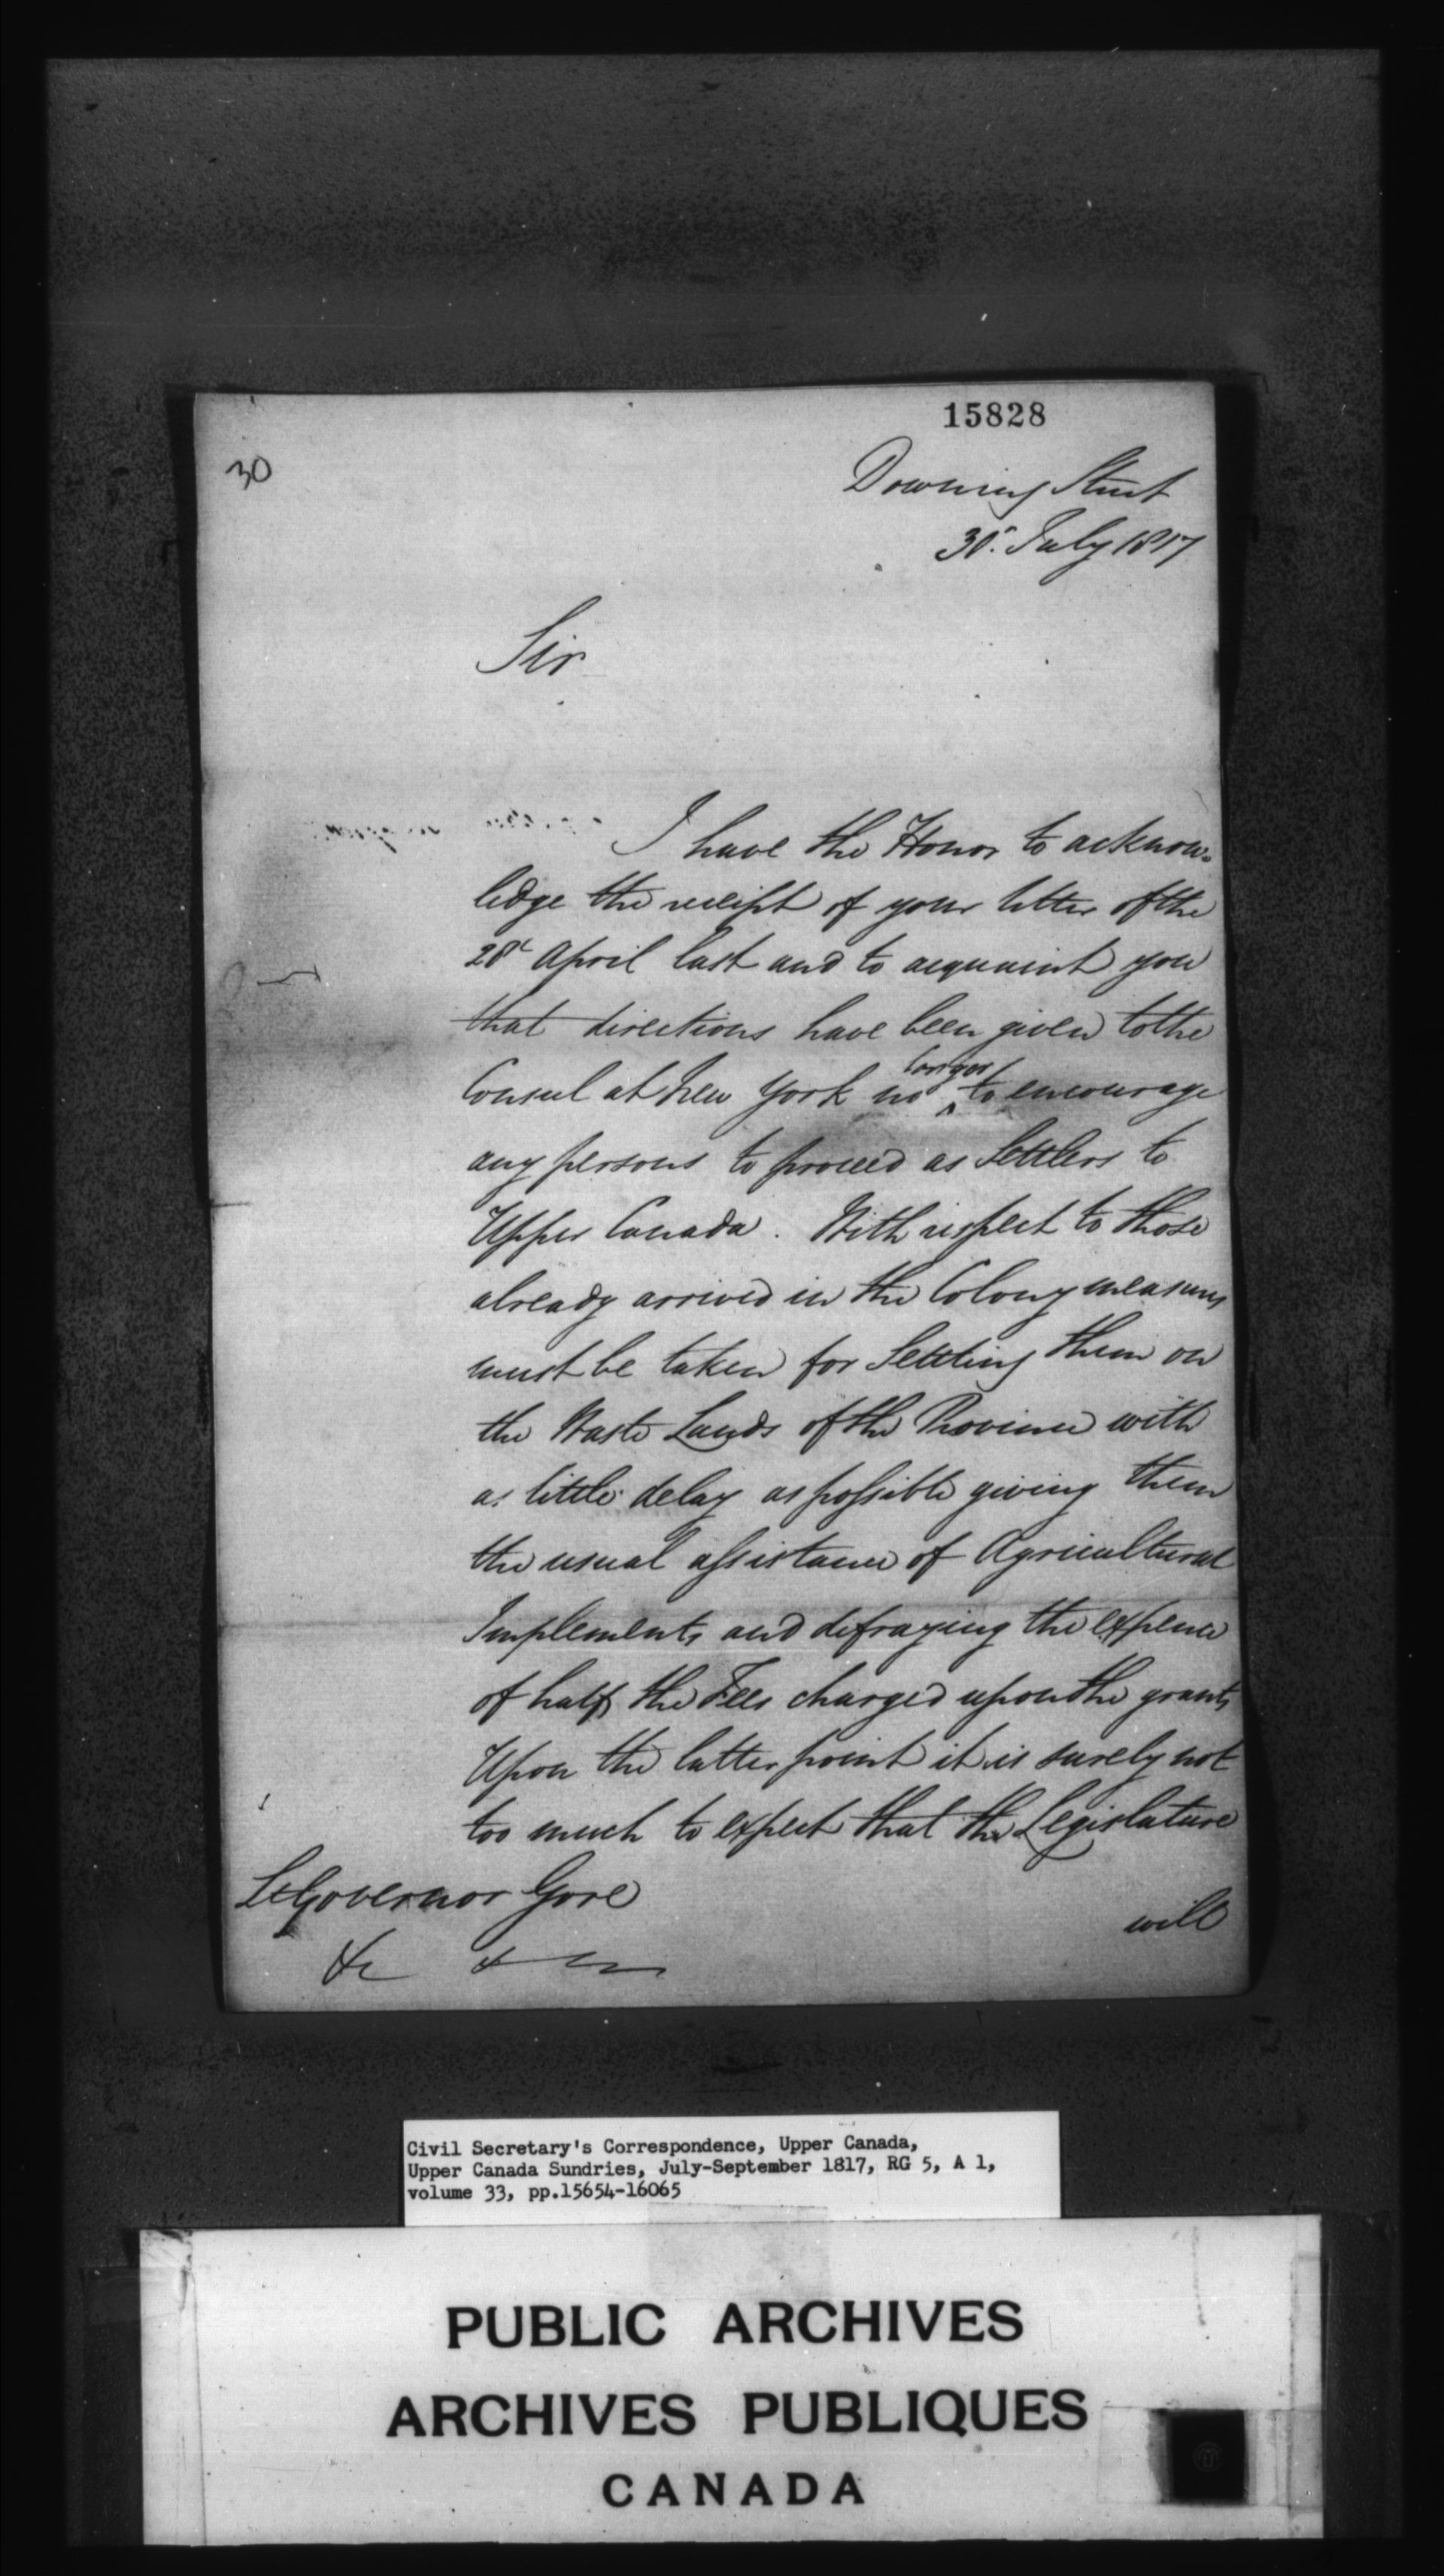 15828
30
Downing Street
30. July 1817
Sir
I have the Honor to acknow-
ledge the receipt of your letter of the
28 April last and to acquaint you
that directions have been given to the
Consul at New York no longer to encourage
any persons to proceed as Settlers to
Upper Canada. With respect to those
already arrived in the Colony measures
must be taken for Settling them on
the Waste Lands of the Province with
as little delay as possible giving them
the usual assistance of Agricultural
Implements and defraying the expence
of half the Fees charged upon the grants
Upon the latter point it is surely not
too much to expect that the Legislature
will
Lt Governor Gore
&c &c
Civil Secretary's Correspondence, Upper Canada,
Upper Canada Sundries, July-September 1817, RG 5, A 1,
volume 33, pp.15654-16065
PUBLIC ARCHIVES
ARCHIVES PUBLIQUES
CANADA